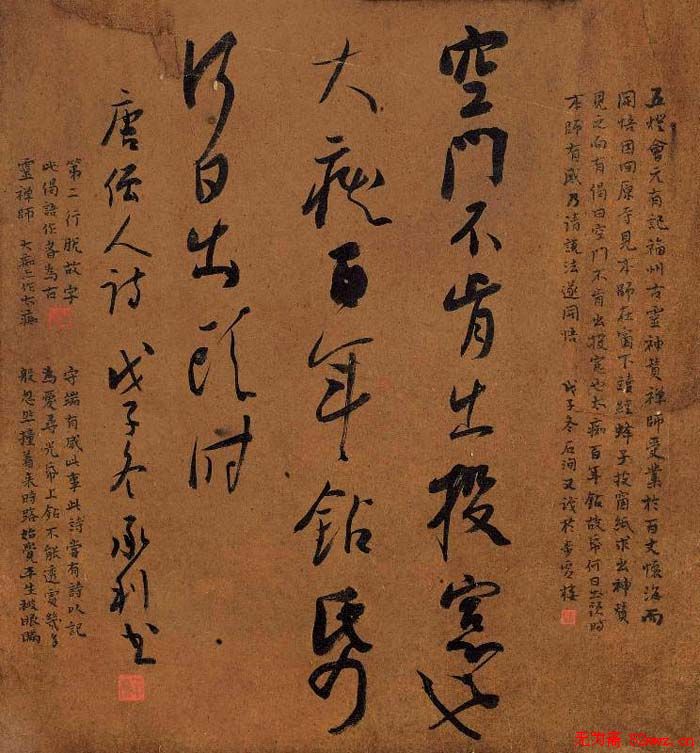 五燈會元有記福州古靈神贊禪師受業於百丈懷海而
開悟因回原寺見本師在窗下讀經蜂子投窗紙求出神贊
見之而有偈曰空門不肯出投窗也太痴百年鉆故帋何日出頭時
本師有感乃請說法遂開悟 戊子冬石洵又識於
空門不肯出投窓也
大痴百年鉆帋
何日出頭时
唐僧人诗 戊子冬 承利书
第二行脫故字
此偈語作者為古
靈禪師 大痴二作太痴
守端有感此事此詩當有詩以記
為愛尋光帋上鉆不能透處幾多
般忽然撞着來時路始覺平生被眼瞞